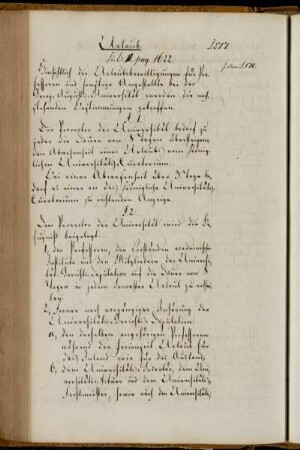 Urlaub. 1877
Hinsichtlich der Urlaubsbewilligungen für Pro-
fessoren und sonstige Angestellte bei der
Universität werden die nach-
stehenden Bestimmungen getroffen.
§ 1
Der Prorector der Universität bedarf zu
jeder die Dauer von 8 Tagen übersteigen-
den Abwesenheit einer Urlaubs vom König-
lichen Universitäts-Curatorium.
Bei einer Abwesenheit über 3 Tage be-
darf es einer an das Königliche Universitäts-
Curatorium zu richtenden Anzeige.
§ 2.
Dem Prorector der Universität wird die Be-
fugniß beigelegt:
1, den Professoren, den Vorständen academischer
Institute und den Mitgliedern der Universi-
täts-Gerichts-Deputation auf die Dauer von 8
Tagen in jedem Semester Urlaub zu erthei-
len,
2, ferner nach vorgängiger Anhörung der
Universitäts-Gerichts-Deputation:
a, den derselben angehörigen Professoren
während der Ferienzeit Urlaub für
das Inland wie für das Ausland,
b, dem Universitäts-Secretär, dem Uni-
versitäts- und dem Universitäts-
sowie auch den Universitäts-